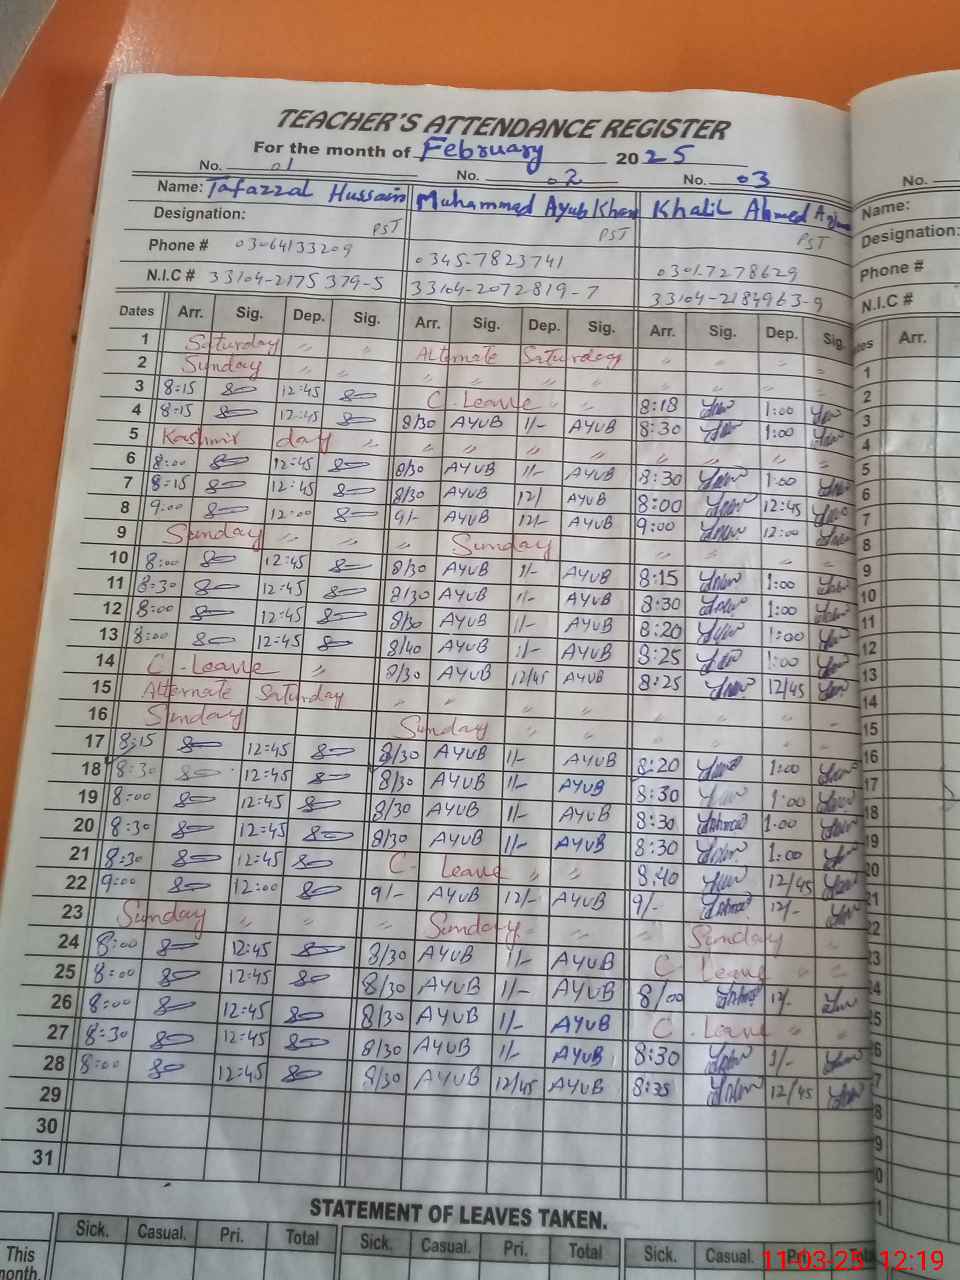 TEACHER'S ATTENDANCE REGISTER
For the month of February 2025
No. 01 No. 02 No. 03 No.
Name: Tafazzal Hussain Muhammad Ayub Khan Khalil Ahmed Name:
Designation: PST PST PST Designation:
Phone # 03064133209 0345-7823741 0301-7278629 Phone #
N.I.C # 33104-2175379-5 33104-2072819-7 33104-2184963-9 N.I.C #
Dates Arr. Sig. Dep. Sig. Arr. Sig. Dep. Sig. Arr. Sig. Dep. Sig. Arr.
1 Saturday " " Alternate Saturday " " "
2 Sunday " " " " " " " "
3 8:15 12:45 C. Leave " " 8:18 1:00
4 8:15 12:45 8/30 AYUB 1/- AYUB 8:30 1:00
5 Kashmir day " " " " " " " "
6 8:00 12:45 8/30 AYUB 1/- AYUB 8:30 1:00
7 8:15 12:45 8/30 AYUB 12/ AYUB 8:00 12:45
8 9:00 12:00 9/- AYUB 12/- AYUB 9:00 12:00
9 Sunday " " " Sunday " " "
10 8:00 12:45 8/30 AYUB 1/- AYUB 8:15 1:00
11 8:30 12:45 8/30 AYUB 1/- AYUB 8:30 1:00
12 8:00 12:45 8/30 AYUB 1/- AYUB 8:20 1:00
13 8:00 12:45 8/40 AYUB 1/- AYUB 8:25 1:00
14 C. Leave " 8/30 AYUB 12/45 AYUB 8:25 12/45
15 Alternate Saturday " " " " " " "
16 Sunday " " Sunday " " " " "
17 8:15 12:45 8/30 AYUB 1/- AYUB 8:20 1:00
18 8:30 12:45 8/30 AYUB 1/- AYUB 8:30 1:00
19 8:00 12:45 8/30 AYUB 1/- AYUB 8:30 1:00
20 8:30 12:45 8/30 AYUB 1/- AYUB 8:30 1:00
21 8:30 12:45 C. Leave " " 8:40 12/45
22 9:00 12:00 9/- AYUB 12/- AYUB 9/- 12/-
23 Sunday " " " Sunday " " Sunday
24 8:00 12:45 8/30 AYUB 1/- AYUB C Leave " "
25 8:00 12:45 8/30 AYUB 1/- AYUB 8/00 12/-
26 8:00 12:45 8/30 AYUB 1/- AYUB C. Leave " "
27 8:30 12:45 8/30 AYUB 1/- AYUB 8:30 1/-
28 8:00 12:45 8/30 AYUB 12/45 AYUB 8:35 12/45
29
30
31
STATEMENT OF LEAVES TAKEN.
Sick. Casual. Pri. Total Sick. Casual. Pri. Total Sick. Casual. Pri.
This
month.
11-03-25 12:19